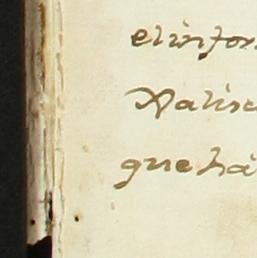 el infor
Valise
que ha